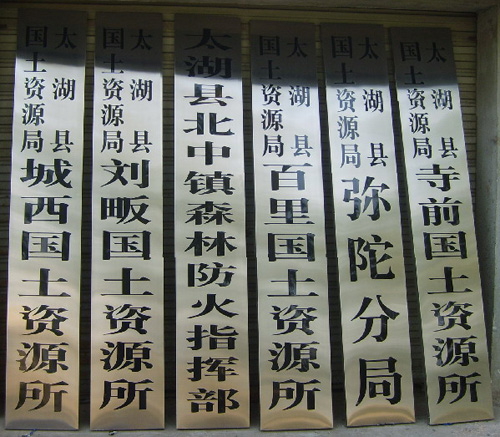 太湖县
国土资源局
城西国土资源所
太湖县
国土资源局
刘畈国土资源所
太湖县北中镇森林防火指挥部
太湖县
国土资源局
百里国土资源所
太湖县
国土资源局
弥陀分局
太湖县
国土资源局
寺前国土资源所